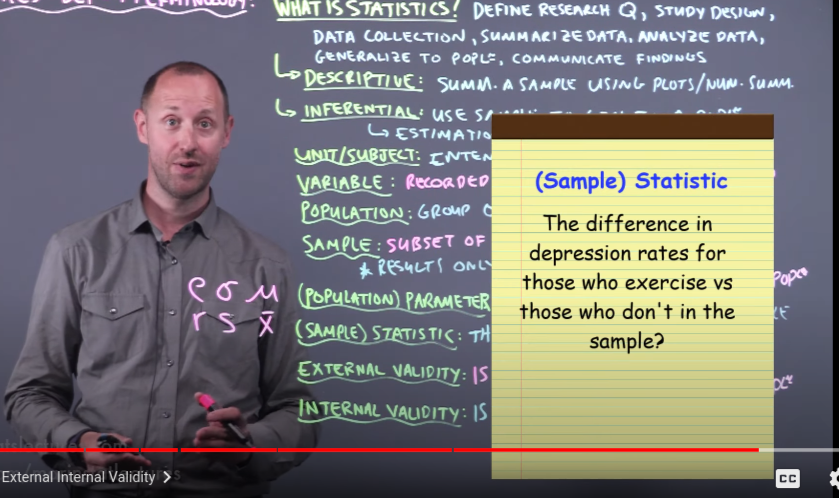 WHAT IS STATISTICS? DEFINE RESEARCH Q, STUDY DESIGN,
DATA COLLECTION, SUMMARIZE DATA, ANALYZE DATA,
GENERALIZE TO POPL<sup>E</sup>, COMMUNICATE FINDINGS
DESCRIPTIVE: SUMM. A SAMPLE USING PLOTS/NUM. SUMM.
INFERENTIAL: USE
ESTIMATIO
UNIT/SUBJECT: INTEN
VARIABLE: RECORDED
POPULATION: GROUP
SAMPLE: SUBSET OF
* RESULTS ONLY
(POPULATION) PARAMETER
(SAMPLE) STATISTIC: TH
EXTERNAL VALIDITY: IS
INTERNAL VALIDITY: IS
ρ σ μ
r s x̄
(Sample) Statistic
The difference in
depression rates for
those who exercise vs
those who don't in the
sample?
External Internal Validity >
CC